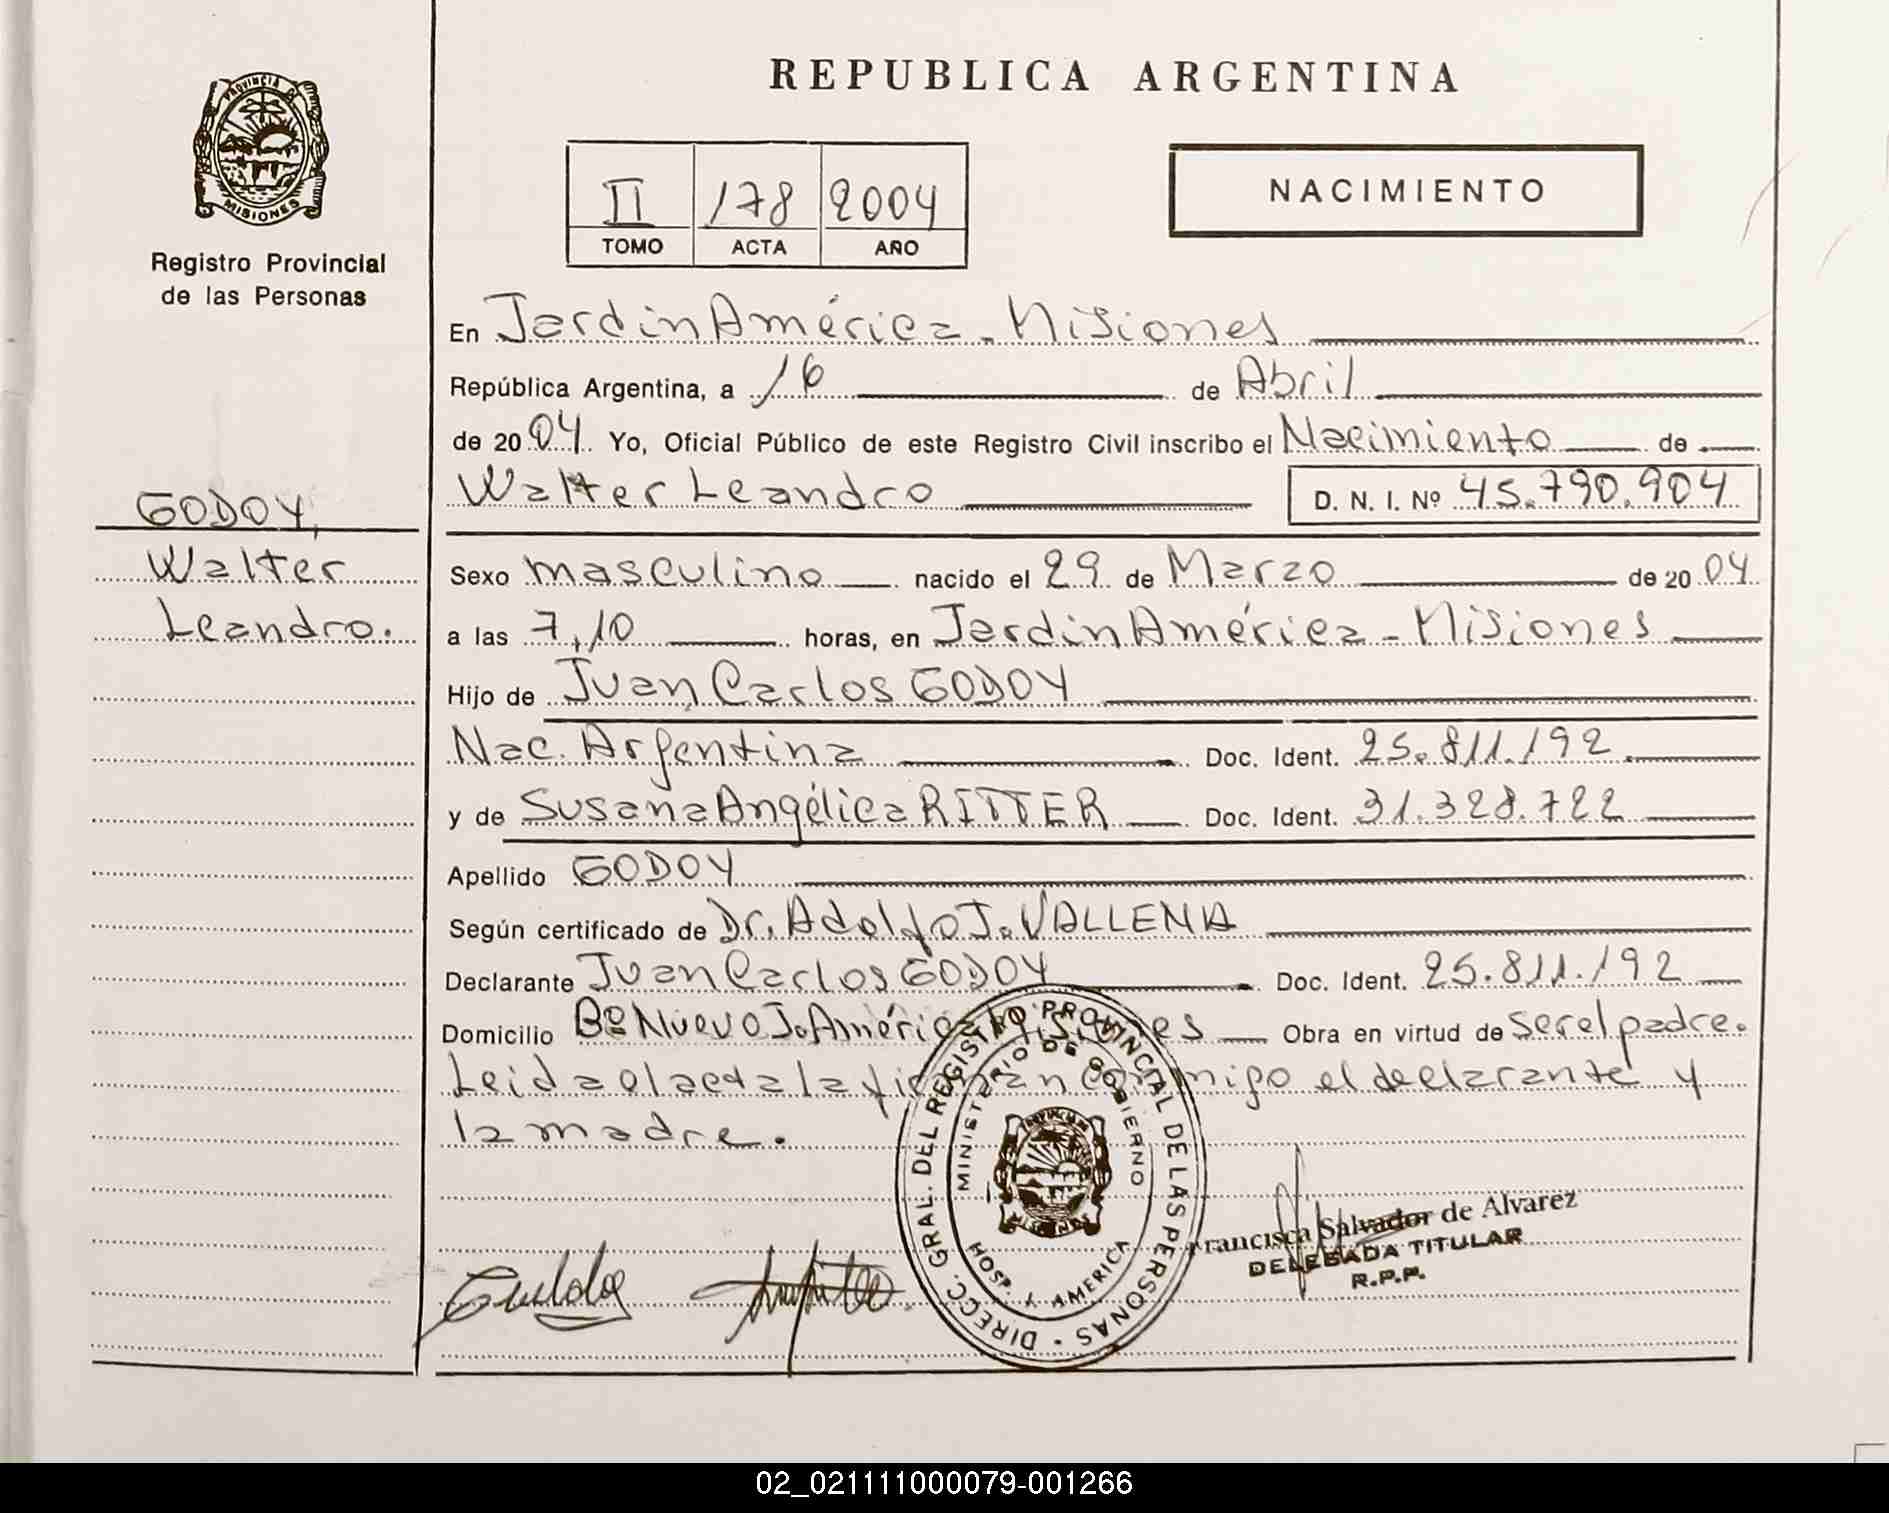 REPUBLICA ARGENTINA
PROVINCIA DE
MISIONES
Registro Provincial
de las Personas
II 178 2004
TOMO ACTA AÑO
NACIMIENTO
GODOY,
Walter
Leandro.
En Jardin América - Misiones
República Argentina, a 16 de Abril
de 2004 Yo, Oficial Público de este Registro Civil inscribo el Nacimiento de
Walter Leandro D. N. I. Nº 45.790.904
Sexo masculino nacido el 29 de Marzo de 2004
a las 7,10 horas, en Jardin América - Misiones
Hijo de Juan Carlos GODOY
Nac. Argentina Doc. Ident. 25.811.192
y de Susana Angélica RITTER Doc. Ident. 31.328.722
Apellido GODOY
Según certificado de Dr. Adolfo J. VALLENA
Declarante Juan Carlos GODOY Doc. Ident. 25.811.192
Domicilio Bº Nuevo J. América Misiones Obra en virtud de ser el padre.
Leida el acta la firman conmigo el declarante y
la madre.
DIRECC. GRAL. DEL REGISTRO PROVINCIAL DE LAS PERSONAS
MINISTERIO DE GOBIERNO
HOSP. J. AMERICA
Francisca Salvador de Alvarez
DELEGADA TITULAR
R.P.P.
02_021111000079-001266